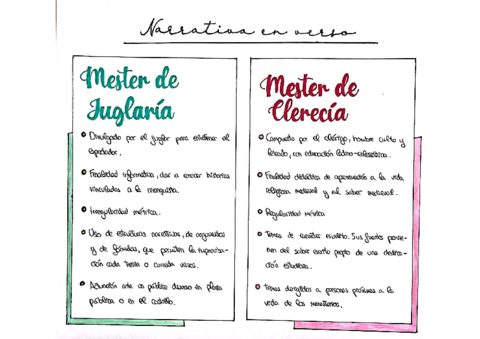 Narrativa en verso
Mester de
Juglaría
Divulgado por el juglar para entretener el
espectador.
Finalidad informativa, dar a conocer historias
vinculadas a la
Irregularidad métrica.
Uso de estructuras narrativas, de
y de fórmulas, que permiten la improvisa-
ción cada treinta o cuarenta versos.
Actuación ante un público diverso en plaza
pública o en el castillo.
Mester de
Clerecía
Compuesto por el clérigo, hombre culto y
letrado, con educación latino-eclesiástica.
Finalidad didáctica de aproximación a la vida
religiosa medieval y al saber medieval.
Regularidad métrica
Temas de carácter erudito. Sus fuentes provie-
nen del saber escrito propio de una dedica-
ción estudiosa.
Temas dirigidos a personas próximas a la
vida de los monasterios.